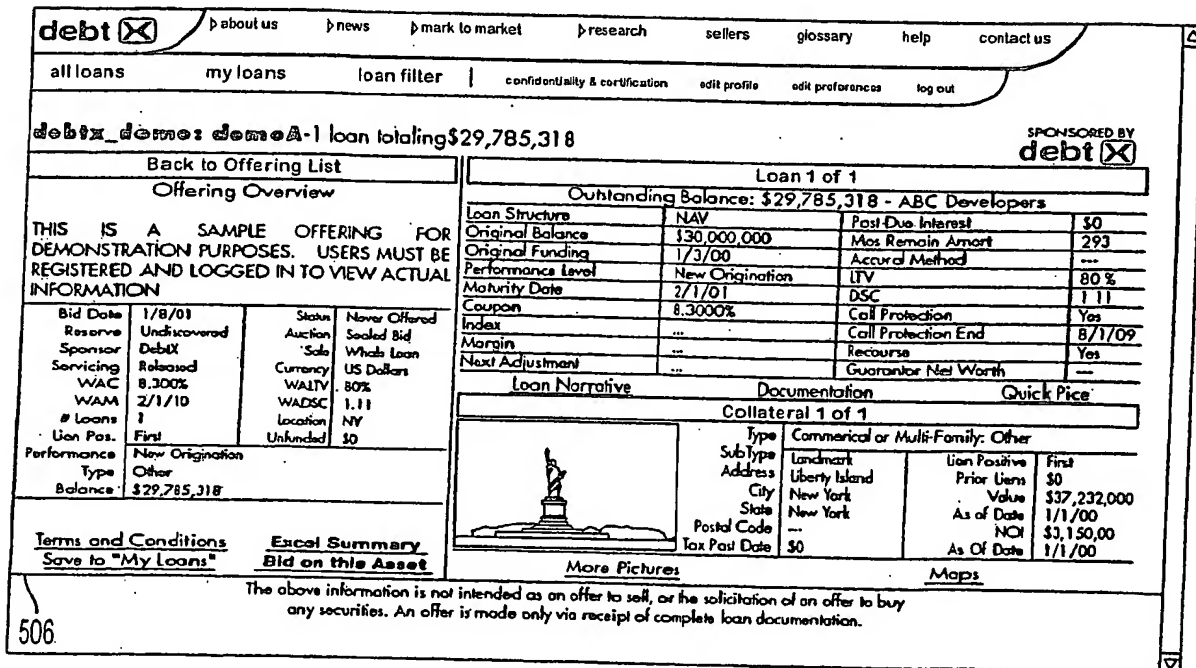 debt X
about us news mark to market research sellers glossary help contact us
all loans my loans loan filter | confidentiality & certification edit profile edit preferences log out
debtx_demo: demoA-1 loan totaling$29,785,318
SPONSORED BY
debt X
Back to Offering List
Offering Overview
THIS IS A SAMPLE OFFERING FOR
DEMONSTRATION PURPOSES. USERS MUST BE
REGISTERED AND LOGGED IN TO VIEW ACTUAL
INFORMATION
Bid Date 1/8/01 Status Never Offered
Reserve Undiscovered Auction Sealed Bid
Sponsor DebtX Sale Whale Loan
Servicing Released Currency US Dollars
WAC 8.300% WALTV 80%
WAM 2/1/10 WADSC 1.11
# Loans 1 Location NY
Lien Pos. First Unfunded $0
Performance New Origination
Type Other
Balance $29,785,318
Terms and Conditions Excel Summary
Save to "My Loans" Bid on this Asset
Loan 1 of 1
Outstanding Balance: $29,785,318 - ABC Developers
Loan Structure NAV Past-Due Interest $0
Original Balance $30,000,000 Mos Remain Amort 293
Original Funding 1/3/00 Accural Method ---
Performance Level New Origination LTV 80 %
Maturity Date 2/1/01 DSC 1 11
Coupon 8.3000% Call Protection Yes
Index --- Call Protection End 8/1/09
Margin --- Recourse Yes
Next Adjustment --- Guarantor Net Worth ---
Loan Norrative Documentation Quick Pice
Collateral 1 of 1
Type Commerical or Multi-Family: Other
SubType Landmark Lien Positive First
Address Liberty Island Prior Liens $0
City New York Value $37,232,000
State New York As of Date 1/1/00
Postal Code --- NOI $3,150,00
Tax Past Date $0 As Of Date 1/1/00
More Pictures Maps
The above information is not intended as an offer to sell, or the solicitation of an offer to buy
any securities. An offer is made only via receipt of complete loan documentation.
506